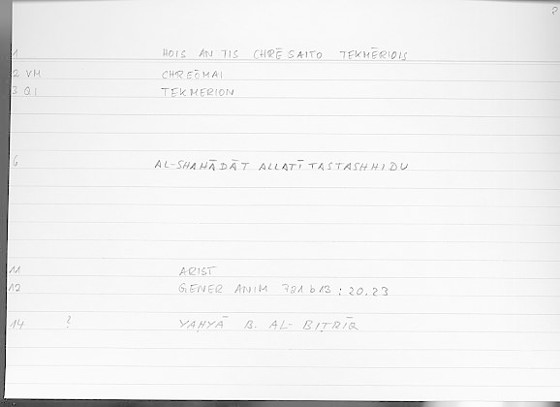 1 HOIS AN TIS CHRĒSAITO TEKMĒRIOIS
2 VM CHREĒMAI
3 QI TEKMERION
6 AL-SHAHĀDĀT ALLATĪ TASTASHHIDU
11 ARIST
12 GENER ANIM 721b13 : 20.23
14 ? YAḤYĀ B. AL-BIṬRĪQ